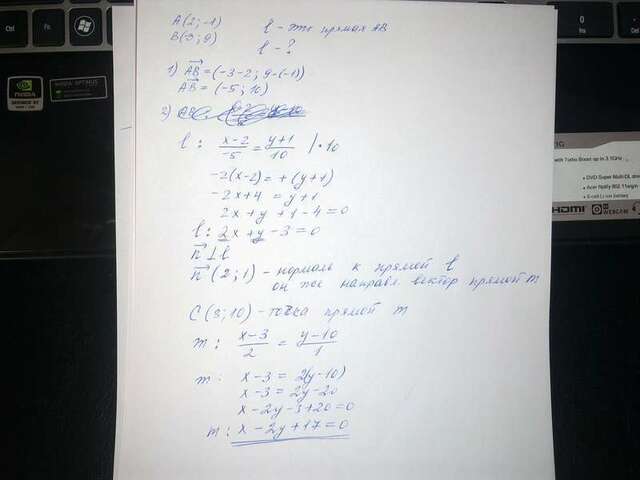 A(2; -1)
B(-3; 9)
l - это прямая AB
l - ?
1) AB = (-3-2; 9-(-1))
AB = (-5; 10)
2)
l: (x-2)/-5 = (y+1)/10 | · 10
-2(x-2) = +(y+1)
-2x+4 = y+1
2x+y+1-4=0
l: 2x+y-3=0
n ⊥ l
n (2; 1) - нормаль к прямой l
он же направл. вектор прямой m
C(3; 10) - точка прямой m
m: (x-3)/2 = (y-10)/1
m: x-3 = 2(y-10)
x-3 = 2y-20
x-2y-3+20=0
m: x-2y+17=0
Ctrl
Fn
Alt
NVIDIA
NVIDIA OPTIMUS
with Turbo Boost up to 3.1GHz
DVD Super Multi DL drive
HDMI
WEBCAM